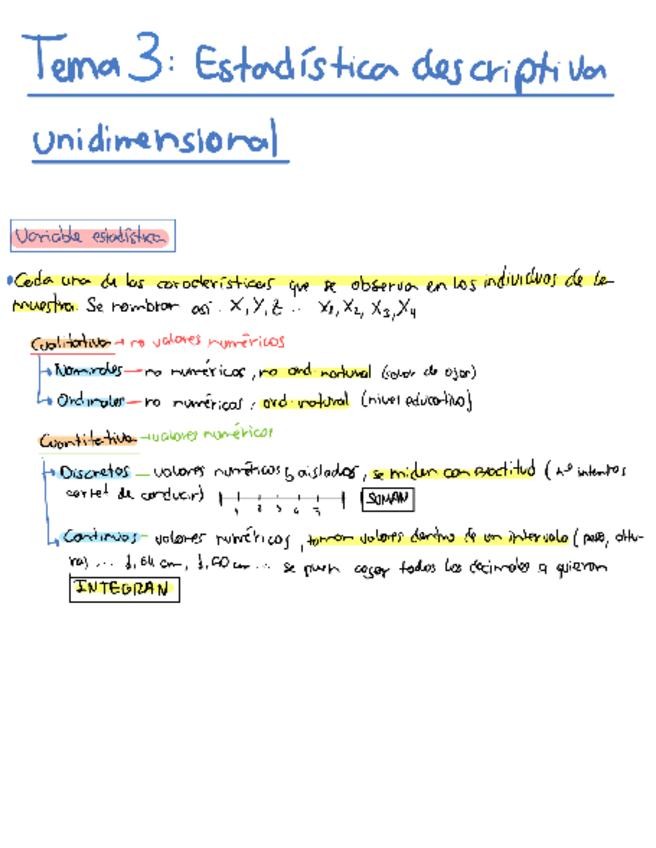 Tema 3: Estadística descriptiva
unidimensional
Variable estadística
• Cada una de las características que se observa en los individuos de la
muestra. Se nombran así. X, Y, Z .. X1, X2, X3, X4
Cualitativa → no valores numéricos
Nominales — no numéricos, no ord. natural (color de ojos)
Ordinales — no numéricos, ord. natural (nivel educativo)
Cuantitativa → valores numéricos
Discretos — valores numéricos, aislados, se miden con exactitud (nº intentos
carnet de conducir) SUMAN
Continuos — valores numéricos, toman valores dentro de un intervalo (peso, altu-
ra) ... 1,64 cm, 1,60 cm ... se puen coger todos los decimales q quieran
INTEGRAN